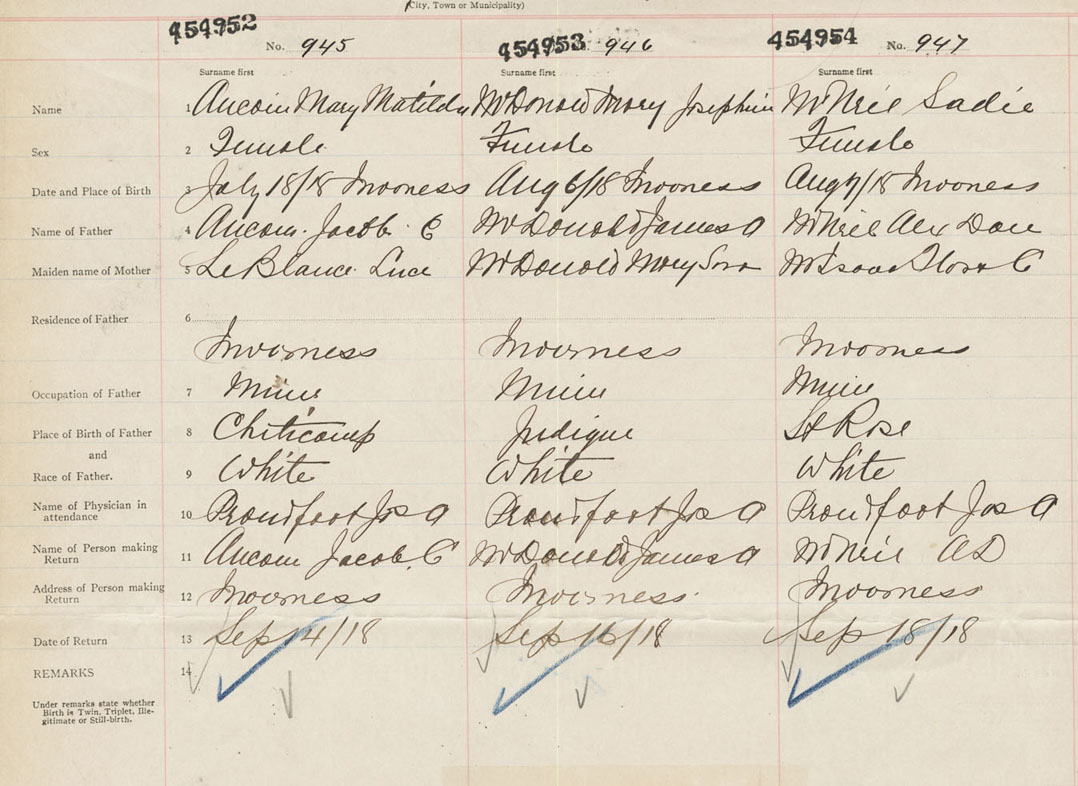 (City, Town or Municipality)
454952 No. 945 454953 946 454954 No. 947
Surname first Surname first Surname first
Name 1 Aucoin Mary Matilda McDonald Mary Josephine McNeil Sadie
Sex 2 Female Female Female
Date and Place of Birth 3 July 18/18 Inverness Aug 6/18 Inverness Aug 7/18 Inverness
Name of Father 4 Aucoin Jacob C McDonald James A McNeil Alex Dan
Maiden name of Mother 5 LeBlanc Luce McDonald Mary Sara McIsaac Flora C
Residence of Father 6
Inverness Inverness Inverness
Occupation of Father 7 Miner Miner Miner
Place of Birth of Father 8 Cheticamp Judique St Rose
and
Race of Father. 9 White White White
Name of Physician in
attendance 10 Proudfoot Jos A Proudfoot Jos A Proudfoot Jos A
Name of Person making
Return 11 Aucoin Jacob C McDonald James A McNeil AD
Address of Person making
Return 12 Inverness Inverness Inverness
Date of Return 13 Sep 14/18 Sep 16/18 Sep 18/18
REMARKS 14
Under remarks state whether
Birth is Twin, Triplet, Ille-
gitimate or Still-birth.